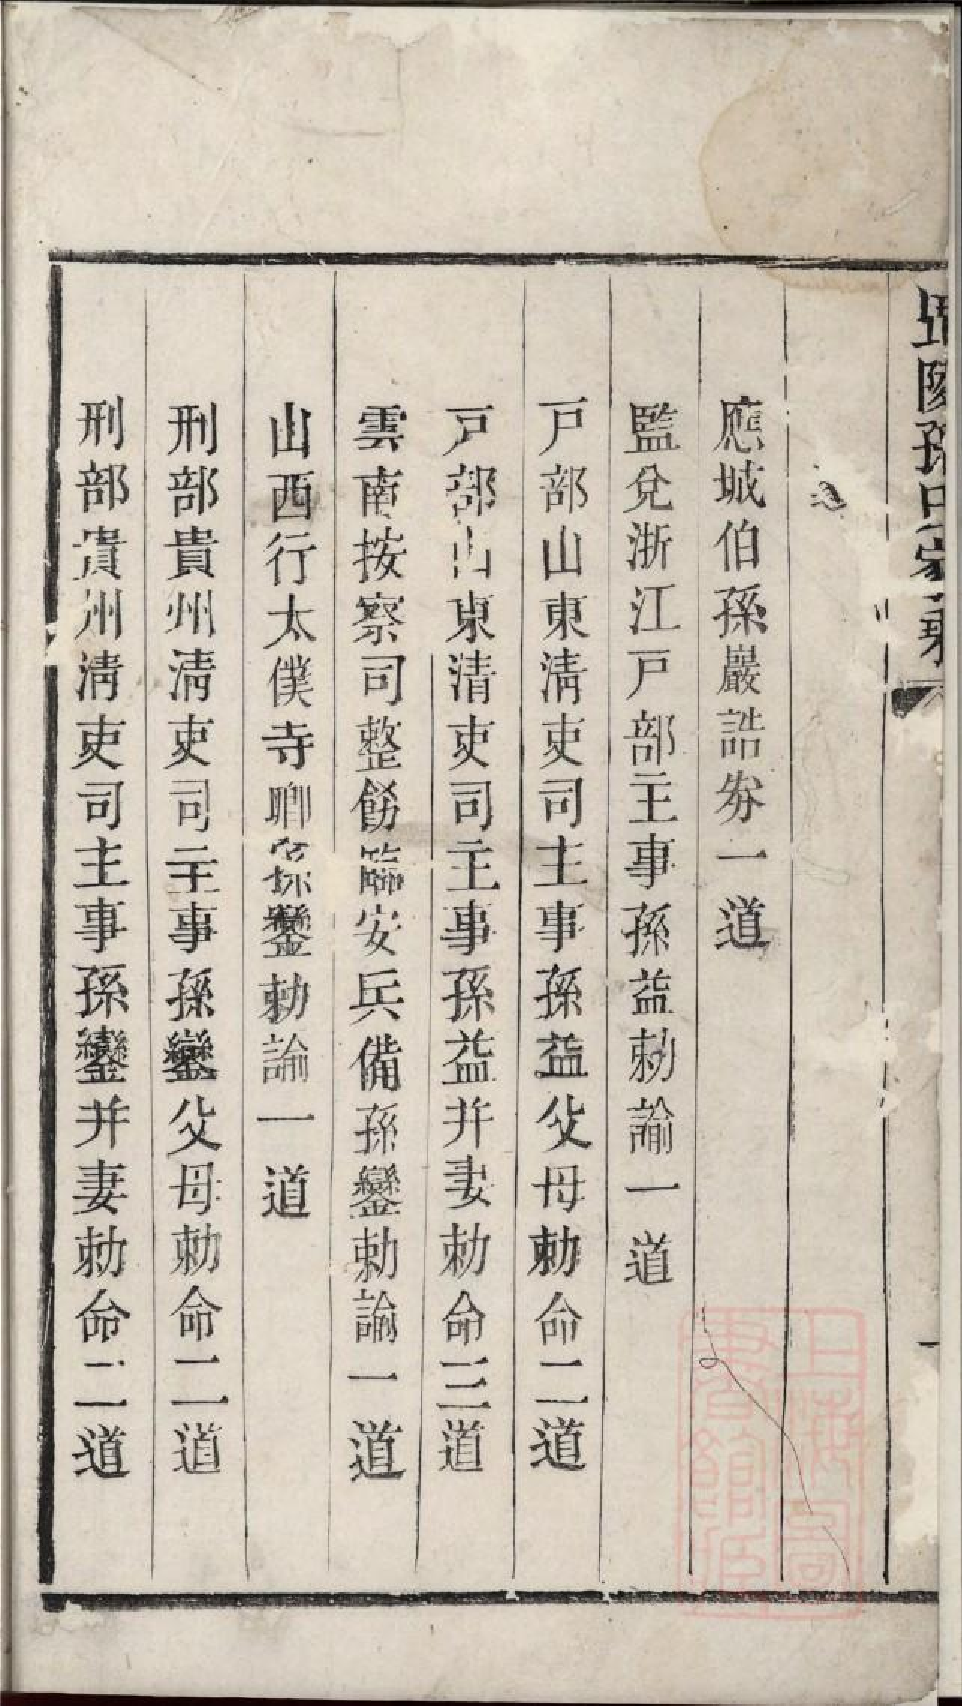 毘陵孫氏家乘
應城伯孫巖誥劵一道
監兌浙江戸部主事孫益勅諭一道
戸部山東清吏司主事孫益父母勅命二道
戸部山東清吏司主事孫益并妻勅命三道
雲南按察司整飭臨安兵備孫鑾勅諭一道
山西行太僕寺卿孫鑾勅諭一道
刑部貴州清吏司主事孫鑾父母勅命二道
刑部貴州清吏司主事孫鑾并妻勅命二道
上海圖書館藏